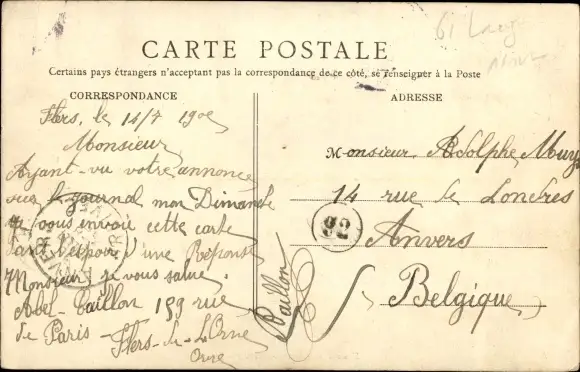 CARTE POSTALE
Certains pays étrangers n'acceptant pas la correspondance de ce côté, se renseigner à la Poste
CORRESPONDANCE
Flers, le 14/7 190
Monsieur
Ayant vu votre annonce
le journal mon Dimanche
je vous envoie cette carte
dans l'espoir d'une Réponse
Monsieur je vous salue.
Abel Taillon 159 rue
de Paris - Flers-de-L'Orne
Orne
Paillon
ADRESSE
Monsieur Adolphe Muys
14 rue de Londres
Anvers
Belgique
92
61